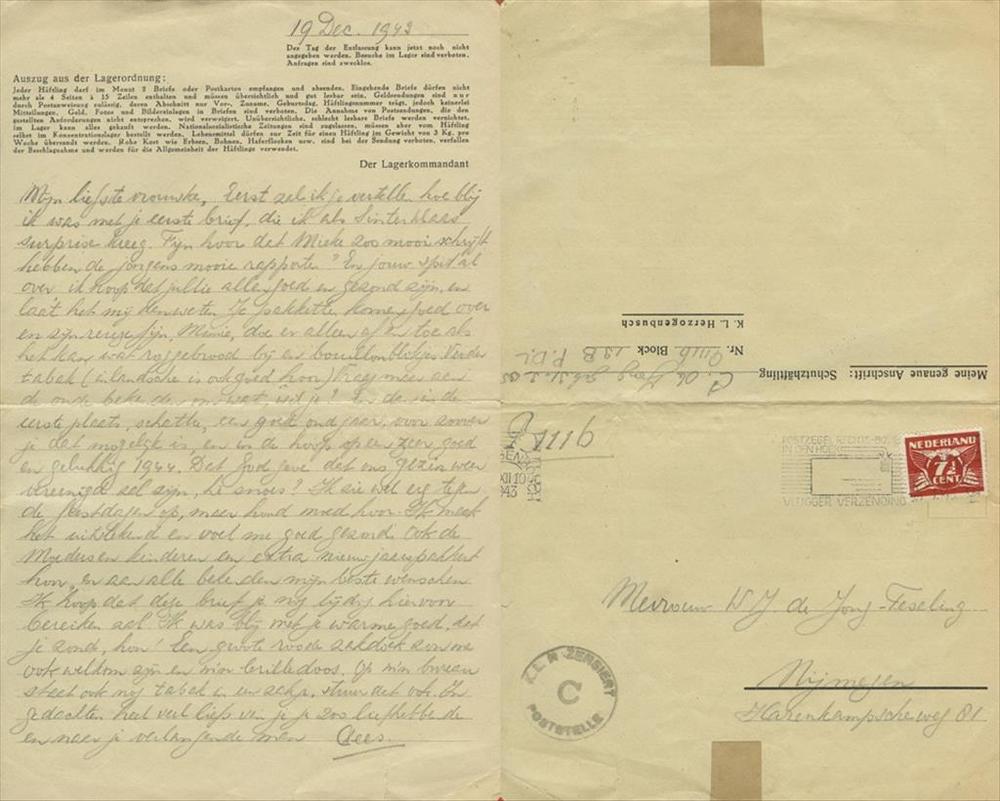 19 Dec. 1943
Der Tag der Entlassung kann jetzt noch nicht
angegeben werden. Besuche im Lager sind verboten.
Anfragen sind zwecklos.
Auszug aus der Lagerordnung:
Jeder Häftling darf im Monat 2 Briefe oder Postkarten empfangen und absenden. Eingehende Briefe dürfen nicht
mehr als 4 Seiten à 15 Zeilen enthalten und müssen übersichtlich und gut lesbar sein. Geldsendungen sind nur
durch Postanweisung zulässig, deren Abschnitt nur Vor-, Zuname, Geburtstag, Häftlingsnummer trägt, jedoch keinerlei
Mitteilungen. Geld, Fotos und Bildereinlagen in Briefen sind verboten. Die Annahme von Postsendungen, die den
gestellten Anforderungen nicht entsprechen, wird verweigert. Unübersichtliche, schlecht lesbare Briefe werden vernichtet.
im Lager kann alles gekauft werden. Nationalsozialistische Zeitungen sind zugelassen, müssen aber vom Häftling
selbst im Konzentrationslager bestellt werden. Lebensmittel dürfen zur Zeit für einen Häftling im Gewicht von 3 Kg. pro
Woche übersandt werden. Rohe Kost wie Erbsen, Bohnen, Haferflocken usw. sind bei der Sendung verboten, verfallen
der Beschlagnahme und werden für die Allgemeinheit der Häftlinge verwendet.
Der Lagerkommandant
Mijn liefste vrouwke, Eerst zal ik je vertellen hoe blij
ik was met je eerste brief, die ik als Sinterklaas
surprise kreeg. Fijn hoor dat Mieke zoo mooi schrijft
hebben de jongens mooie rapporten? En jouw spit al
over ik hoop dat jullie allen goed en gezond zijn, en
laat het mij dan weten. Je pakketten komen goed over
en zijn reuze fijn, Mimie, doe er alleen af en toe als
het kan wat roggebrood bij en bouillonblokjes. Verder
tabak (inlandsche is ook goed hoor) Vraag maar aan
de oude bekende, en wat wil je? En dan in de
eerste plaats, schatte, een goed oud jaar, voor zoover
je dat mogelijk is, en in de hoop op een zeer goed
en gelukkig 1944. Dat God geve dat ons gezin weer
vereenigd zal zijn, hè snoes? Ik zie wel erg tegen
de feestdagen op, maar houd moed hoor. Ik maak
het uitstekend en voel me goed gezond. Ook de
Moeders en kinderen een extra nieuwjaarspakkerd
hoor, en aan alle bekenden mijn beste wenschen
Ik hoop dat deze brief je nog tijdig hiervoor
bereiken zal. Ik was blij met je warme goed, dat
je zond, hoor! Een groote roode zakdoek zou me
ook welkom zijn en m'n brilledoos. Op m'n bureau
staat ook nog tabak in en. Stuur dat ook. In
gedachten heel veel liefs van je je zoo liefhebbende
en naar je verlangende man Cees.
K. L. Herzogenbusch
Nr. 9116 Block 13B
P.D.L.
Meine genaue Anschrift: Schutzhäftling
C. de Jong geb.
9118
XII 10
1943
POSTZEGEL RECHTS-BOVEN
IN DEN HOEK
VLUGGER VERZENDING
NEDERLAND
7½
CENT
Mevrouw W J. de Jong-Feseling
Nijmegen
Hazenkampscheweg 81
K.L.H ZENSIERT
C
POSTSTELLE